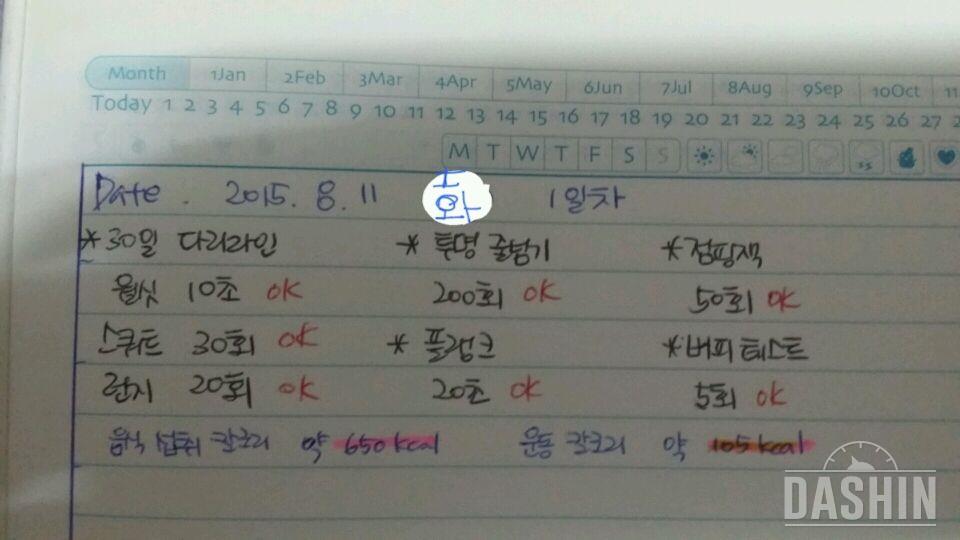 Month 1Jan 2Feb 3Mar 4Apr 5May 6Jun 7Jul 8Aug 9Sep 10Oct 11
Today 1 2 3 4 5 6 7 8 9 10 11 12 13 14 15 16 17 18 19 20 21 22 23 24 25 26 27 28
M T W T F S S
Date. 2015. 8. 11 화 1일차
*30일 다리라인 * 투명 줄넘기 *점핑잭
월싯 10초 OK 200회 OK 50회 OK
스쿼트 30회 OK * 플랭크 *버피테스트
런지 20회 OK 20초 OK 5회 OK
음식 섭취 칼로리 약 650kcal 운동 칼로리 약 105kcal
DASHIN